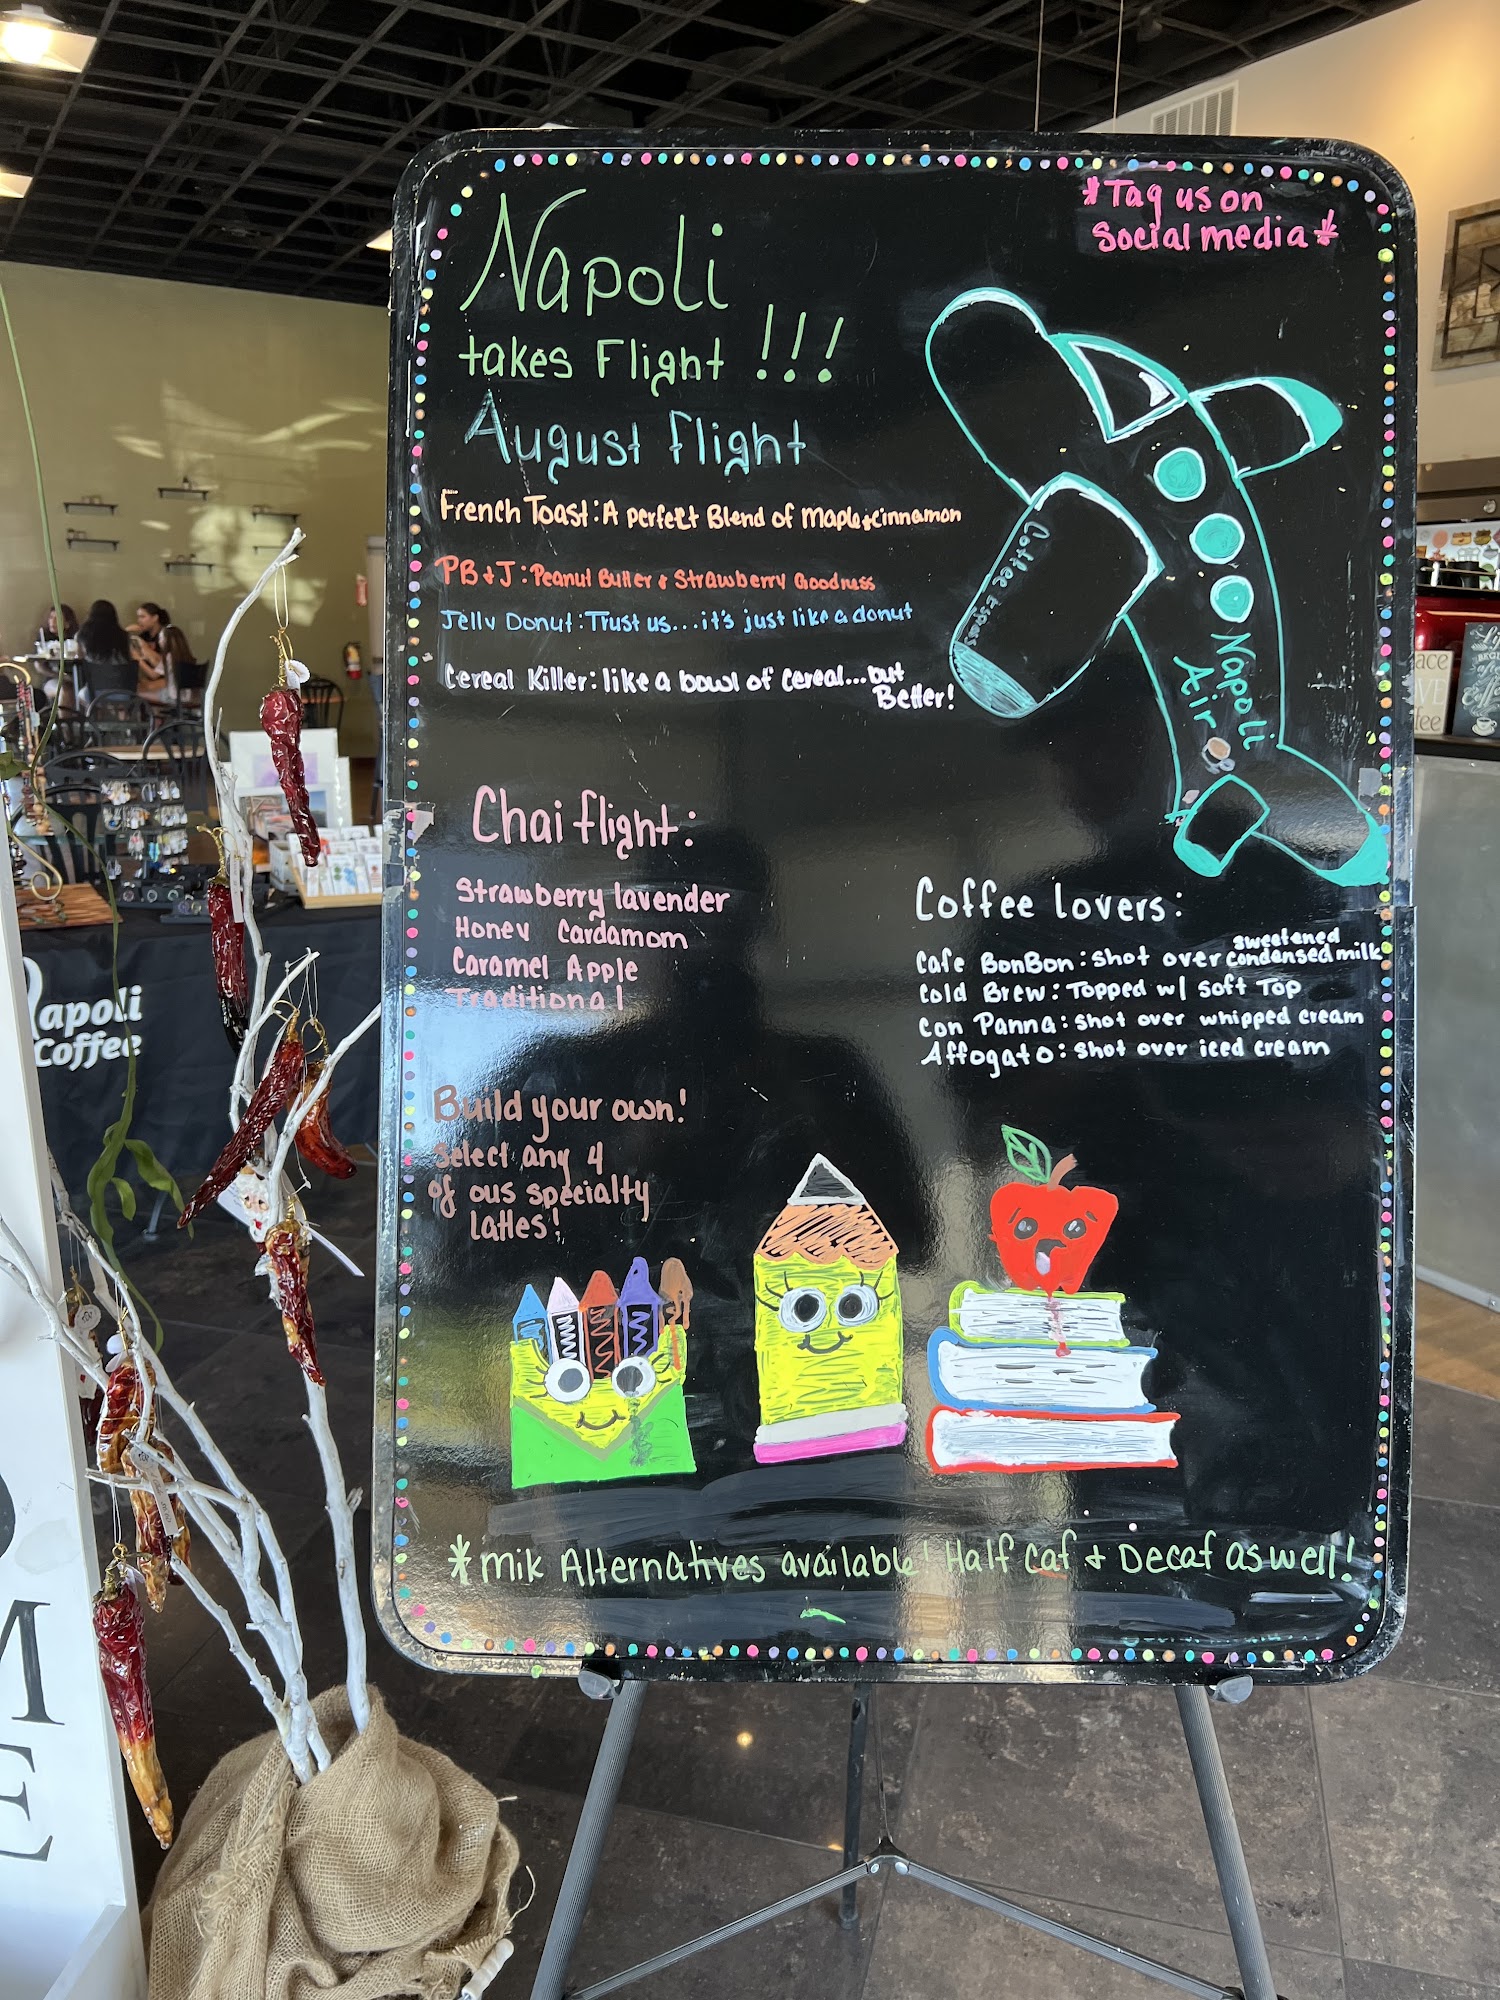 *Tag us on
social media*
Napoli
takes Flight !!!
August flight
French Toast: A perfect Blend of Maple & Cinnamon
PB & J: Peanut Butter & Strawberry Goodness
Jelly Donut: Trust us... it's just like a donut
Cereal Killer: like a bowl of cereal... but
Better!
Coffee Express
Napoli
Air
Chai flight:
Strawberry lavender
Honey Cardamom
Caramel Apple
Traditional
Coffee lovers:
Cafe BonBon: shot over sweetened condensed milk
Cold Brew: Topped w/ soft Top
Con Panna: shot over whipped cream
Affogato: shot over iced cream
Build your own!
select any 4
of our specialty
lattes!
*mik Alternatives available! Half Caf & Decaf as well!
Napoli
Coffee
M
E